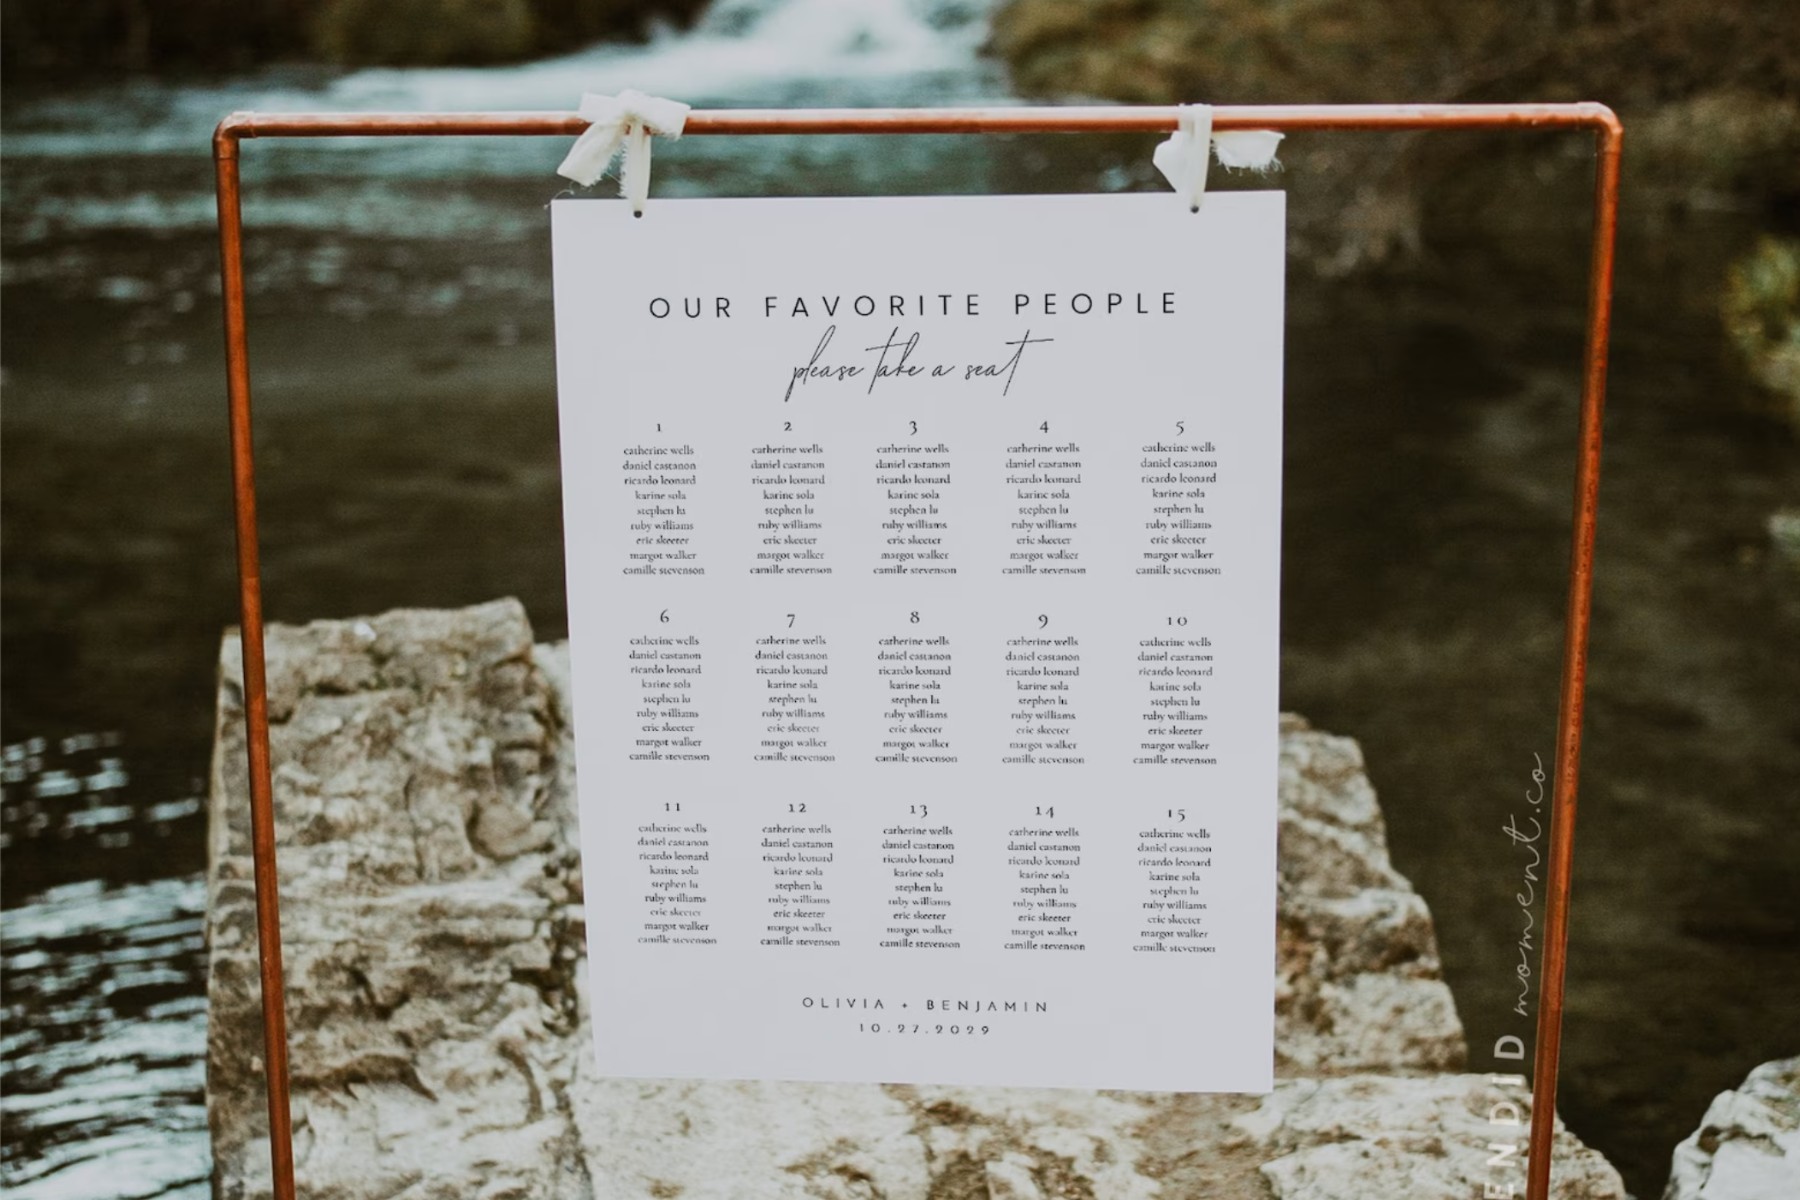 OUR FAVORITE PEOPLE
please take a seat
1
catherine wells
daniel castanon
ricardo leonard
karine sola
stephen lu
ruby williams
eric skeeter
margot walker
camille stevenson
2
catherine wells
daniel castanon
ricardo leonard
karine sola
stephen lu
ruby williams
eric skeeter
margot walker
camille stevenson
3
catherine wells
daniel castanon
ricardo leonard
karine sola
stephen lu
ruby williams
eric skeeter
margot walker
camille stevenson
4
catherine wells
daniel castanon
ricardo leonard
karine sola
stephen lu
ruby williams
eric skeeter
margot walker
camille stevenson
5
catherine wells
daniel castanon
ricardo leonard
karine sola
stephen lu
ruby williams
eric skeeter
margot walker
camille stevenson
6
catherine wells
daniel castanon
ricardo leonard
karine sola
stephen lu
ruby williams
eric skeeter
margot walker
camille stevenson
7
catherine wells
daniel castanon
ricardo leonard
karine sola
stephen lu
ruby williams
eric skeeter
margot walker
camille stevenson
8
catherine wells
daniel castanon
ricardo leonard
karine sola
stephen lu
ruby williams
eric skeeter
margot walker
camille stevenson
9
catherine wells
daniel castanon
ricardo leonard
karine sola
stephen lu
ruby williams
eric skeeter
margot walker
camille stevenson
10
catherine wells
daniel castanon
ricardo leonard
karine sola
stephen lu
ruby williams
eric skeeter
margot walker
camille stevenson
11
catherine wells
daniel castanon
ricardo leonard
karine sola
stephen lu
ruby williams
eric skeeter
margot walker
camille stevenson
12
catherine wells
daniel castanon
ricardo leonard
karine sola
stephen lu
ruby williams
eric skeeter
margot walker
camille stevenson
13
catherine wells
daniel castanon
ricardo leonard
karine sola
stephen lu
ruby williams
eric skeeter
margot walker
camille stevenson
14
catherine wells
daniel castanon
ricardo leonard
karine sola
stephen lu
ruby williams
eric skeeter
margot walker
camille stevenson
15
catherine wells
daniel castanon
ricardo leonard
karine sola
stephen lu
ruby williams
eric skeeter
margot walker
camille stevenson
OLIVIA + BENJAMIN
10.27.2029
ENDID moment.co